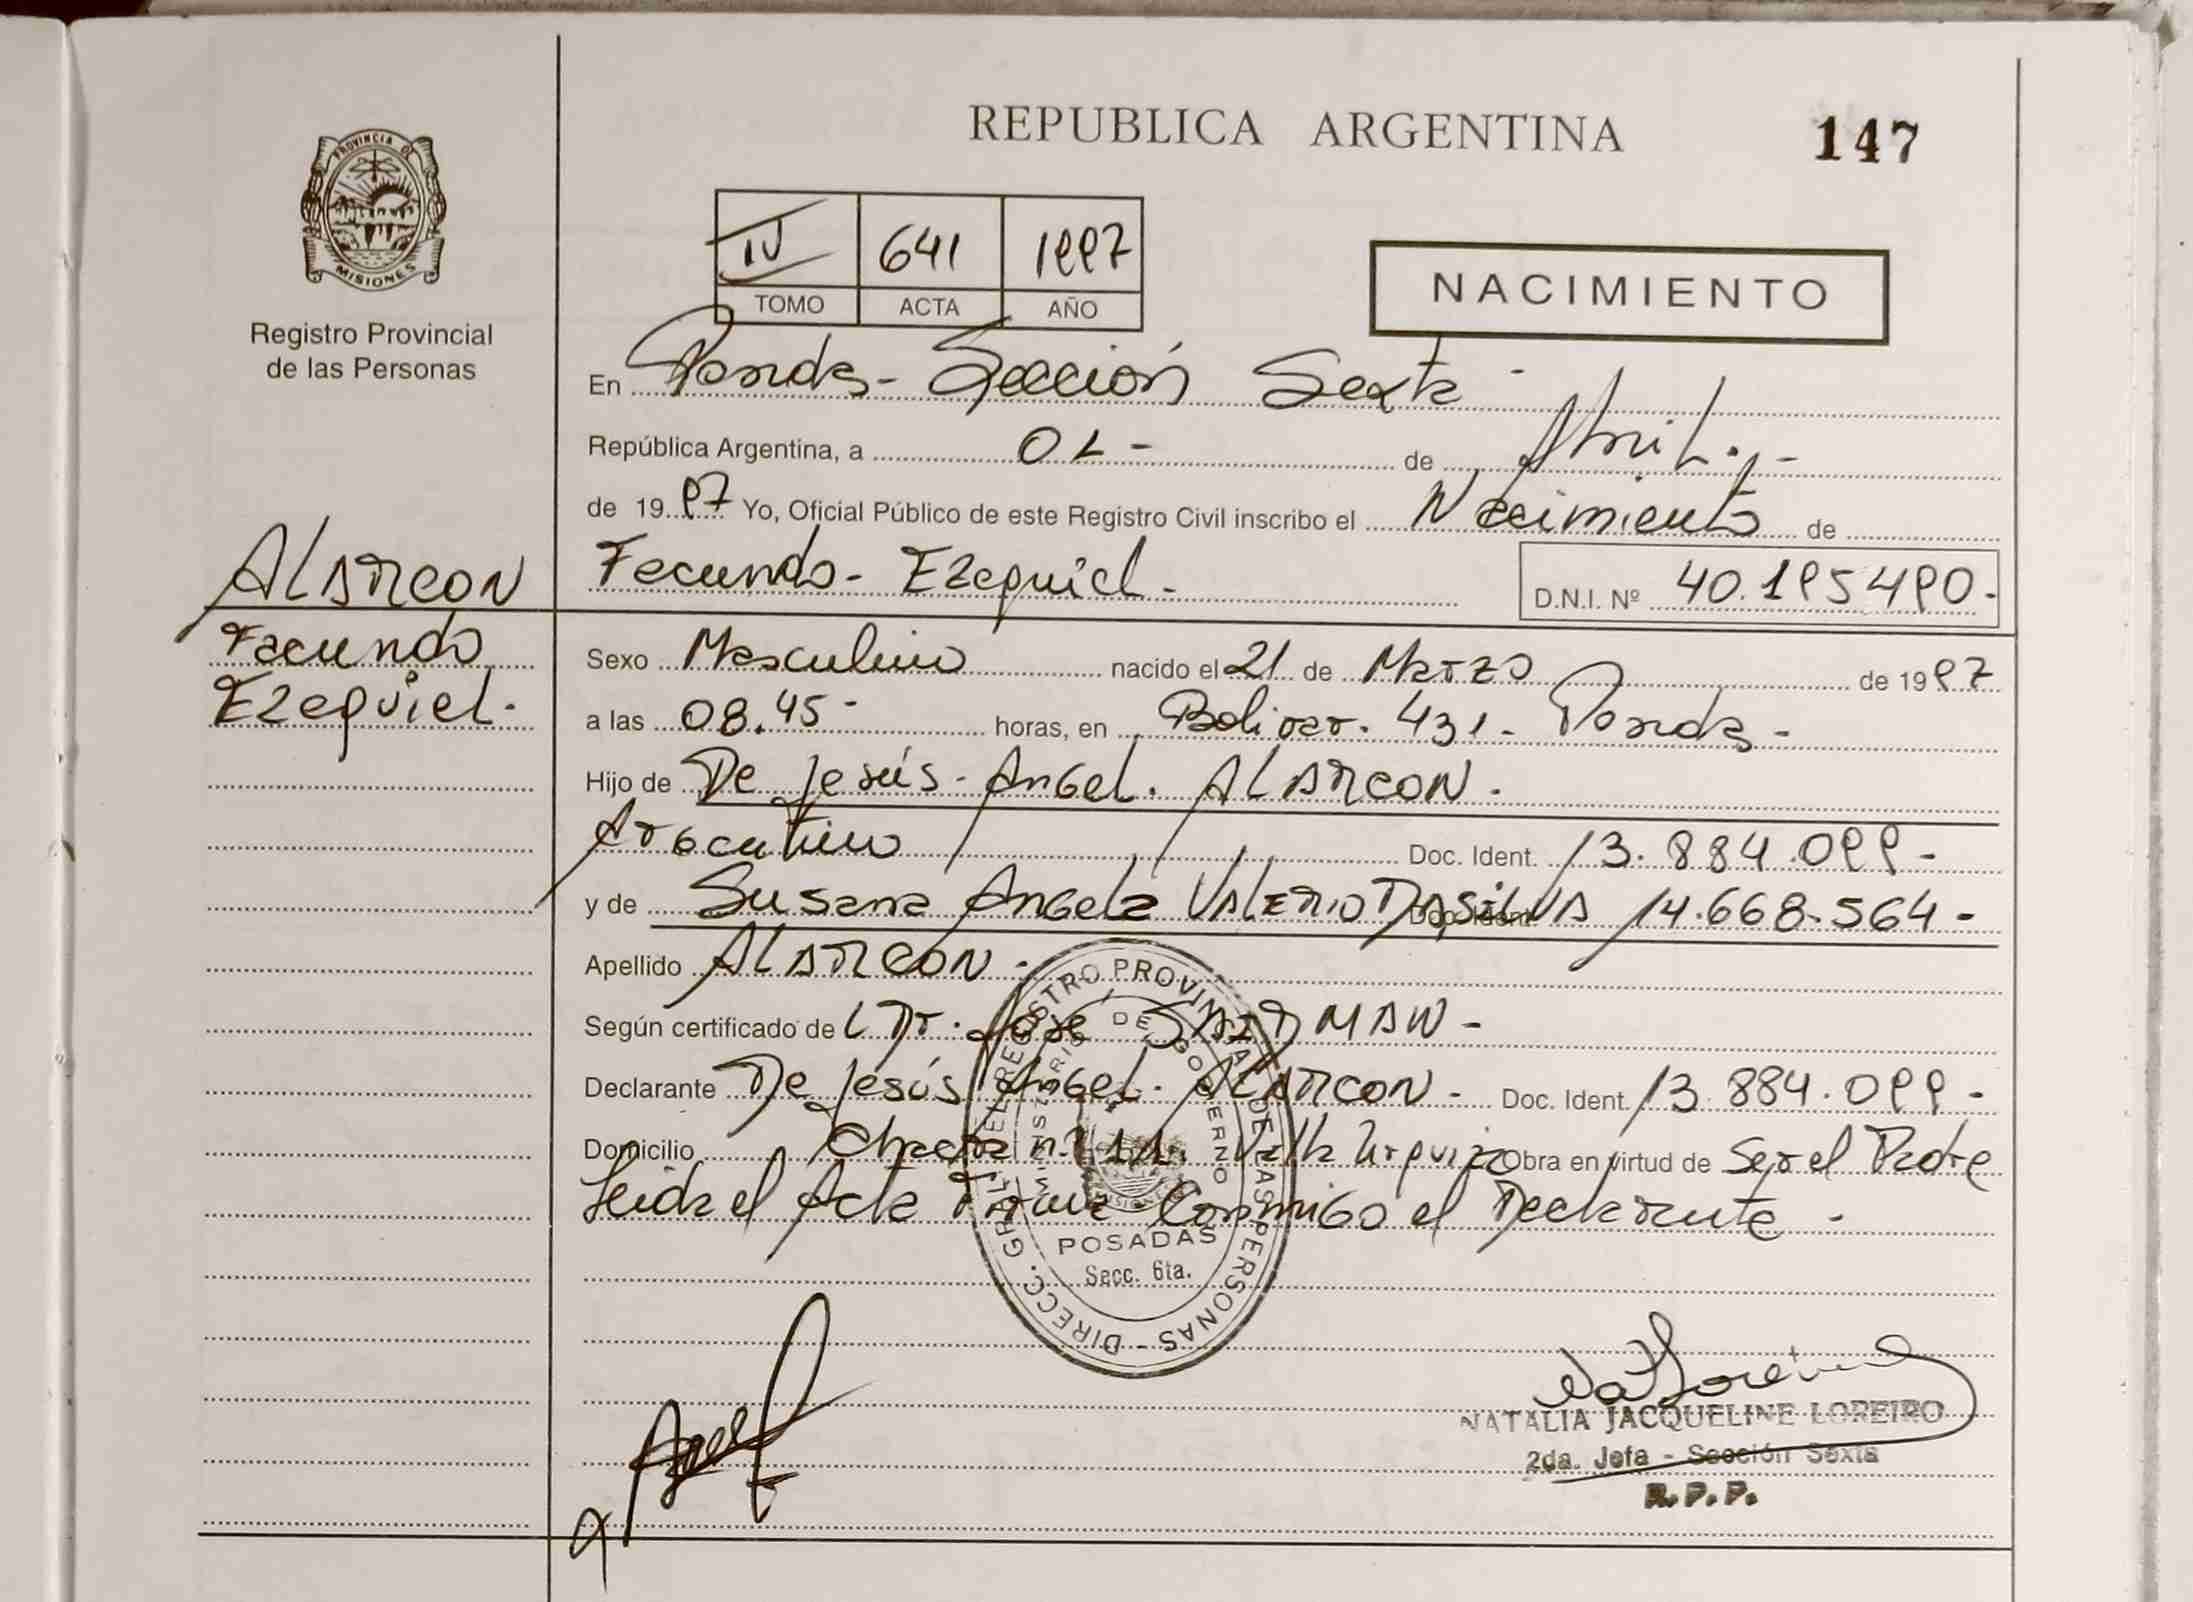 REPUBLICA ARGENTINA
147
PROVINCIA DE
MISIONES
Registro Provincial
de las Personas
IV 641 1997
TOMO ACTA AÑO
NACIMIENTO
En Posadas - Sección Sexta -
República Argentina, a 01 - de Abril. -
de 1997 Yo, Oficial Público de este Registro Civil inscribo el Nacimiento de
Facundo - Ezequiel -
D.N.I. Nº 40.195490 -
ALARCON
Facundo
Ezequiel.
Sexo Masculino nacido el 21 de Marzo de 1997
a las 08.45 - horas, en Bolivar. 431 - Posadas -
Hijo de De Jesús - Angel. ALARCON.
Argentino Doc. Ident. 13.884.099 -
y de Susana Angela VALERIO DASILVA Doc. Ident. 14.668.564 -
Apellido ALARCON -
Según certificado de L Dr. José -
Declarante De Jesús Angel. ALARCON - Doc. Ident. 13.884.099 -
Domicilio Chacra nº 11. Villa Urquiza Obra en virtud de Ser el Padre
Leida el Acta Firma Conmigo el Declarante -
DIRECC. GRAL. DEL REGISTRO PROVINCIAL DE LAS PERSONAS -
MINISTERIO DE GOBIERNO
MISIONES
POSADAS
Secc. 6ta.
NATALIA JACQUELINE LOREIRO
2da. Jefa - Sección Sexta
R.P.P.